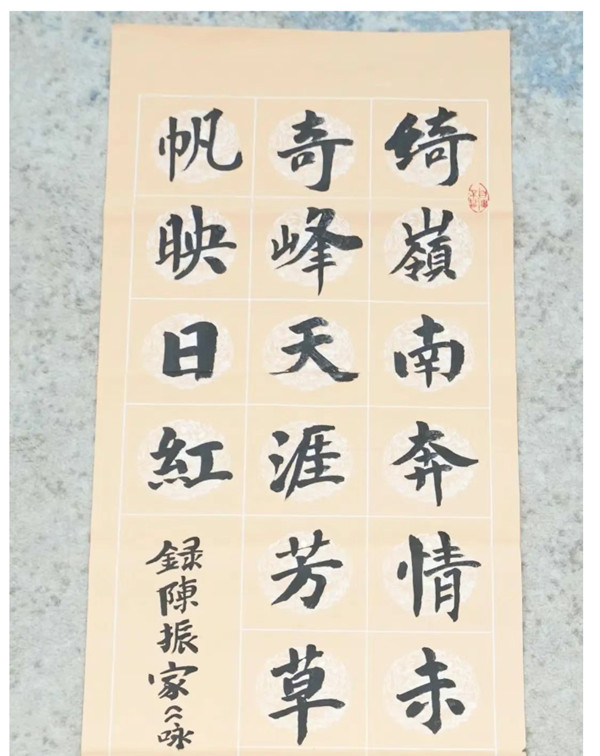 绮嶺南奔情未
奇峰天涯芳草
帆映日紅
録陳振家
咏